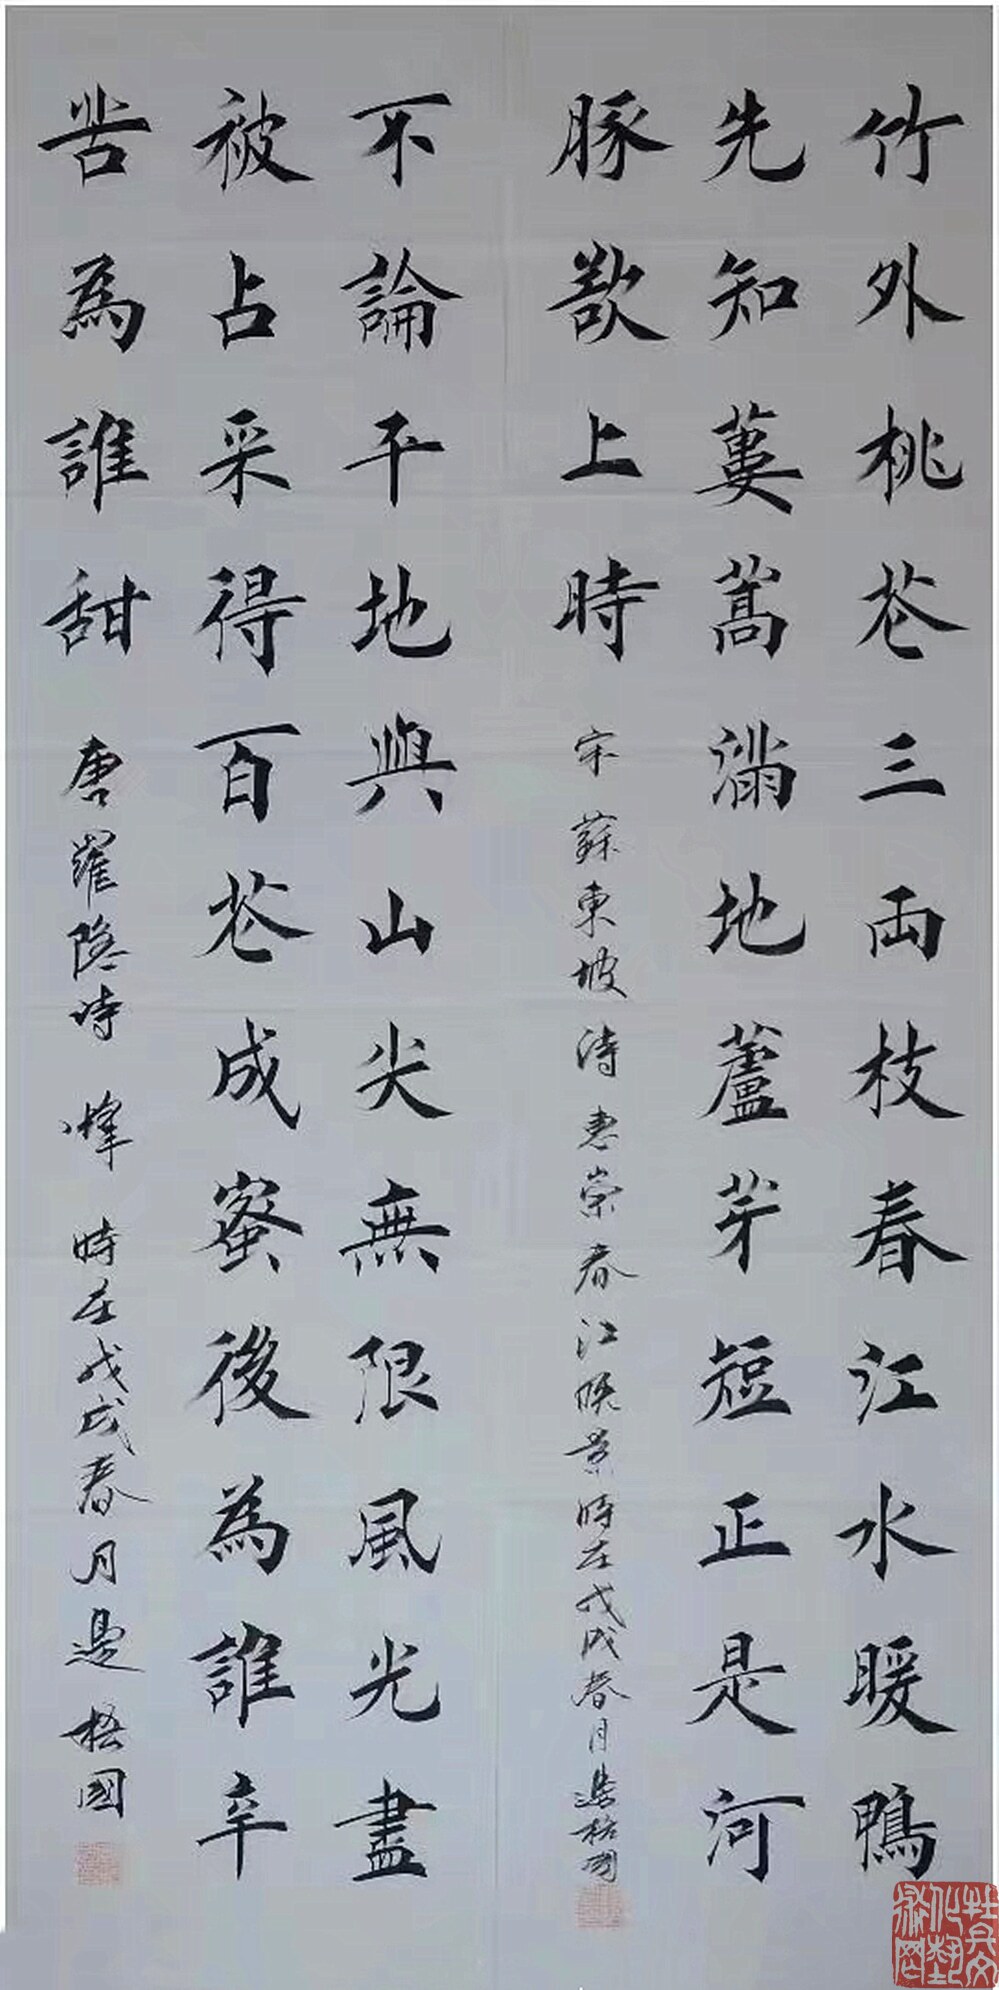 竹外桃花三兩枝春江水暖鴨
先知蔞蒿滿地蘆芽短正是河
豚欲上時
宋蘇東坡詩惠崇春江晚景時在戊戌春月邊梧國
不論平地與山尖無限風光盡
被占采得百花成蜜後為誰辛
苦為誰甜
唐羅隱詩 蜂 時在戊戌春月邊梧國